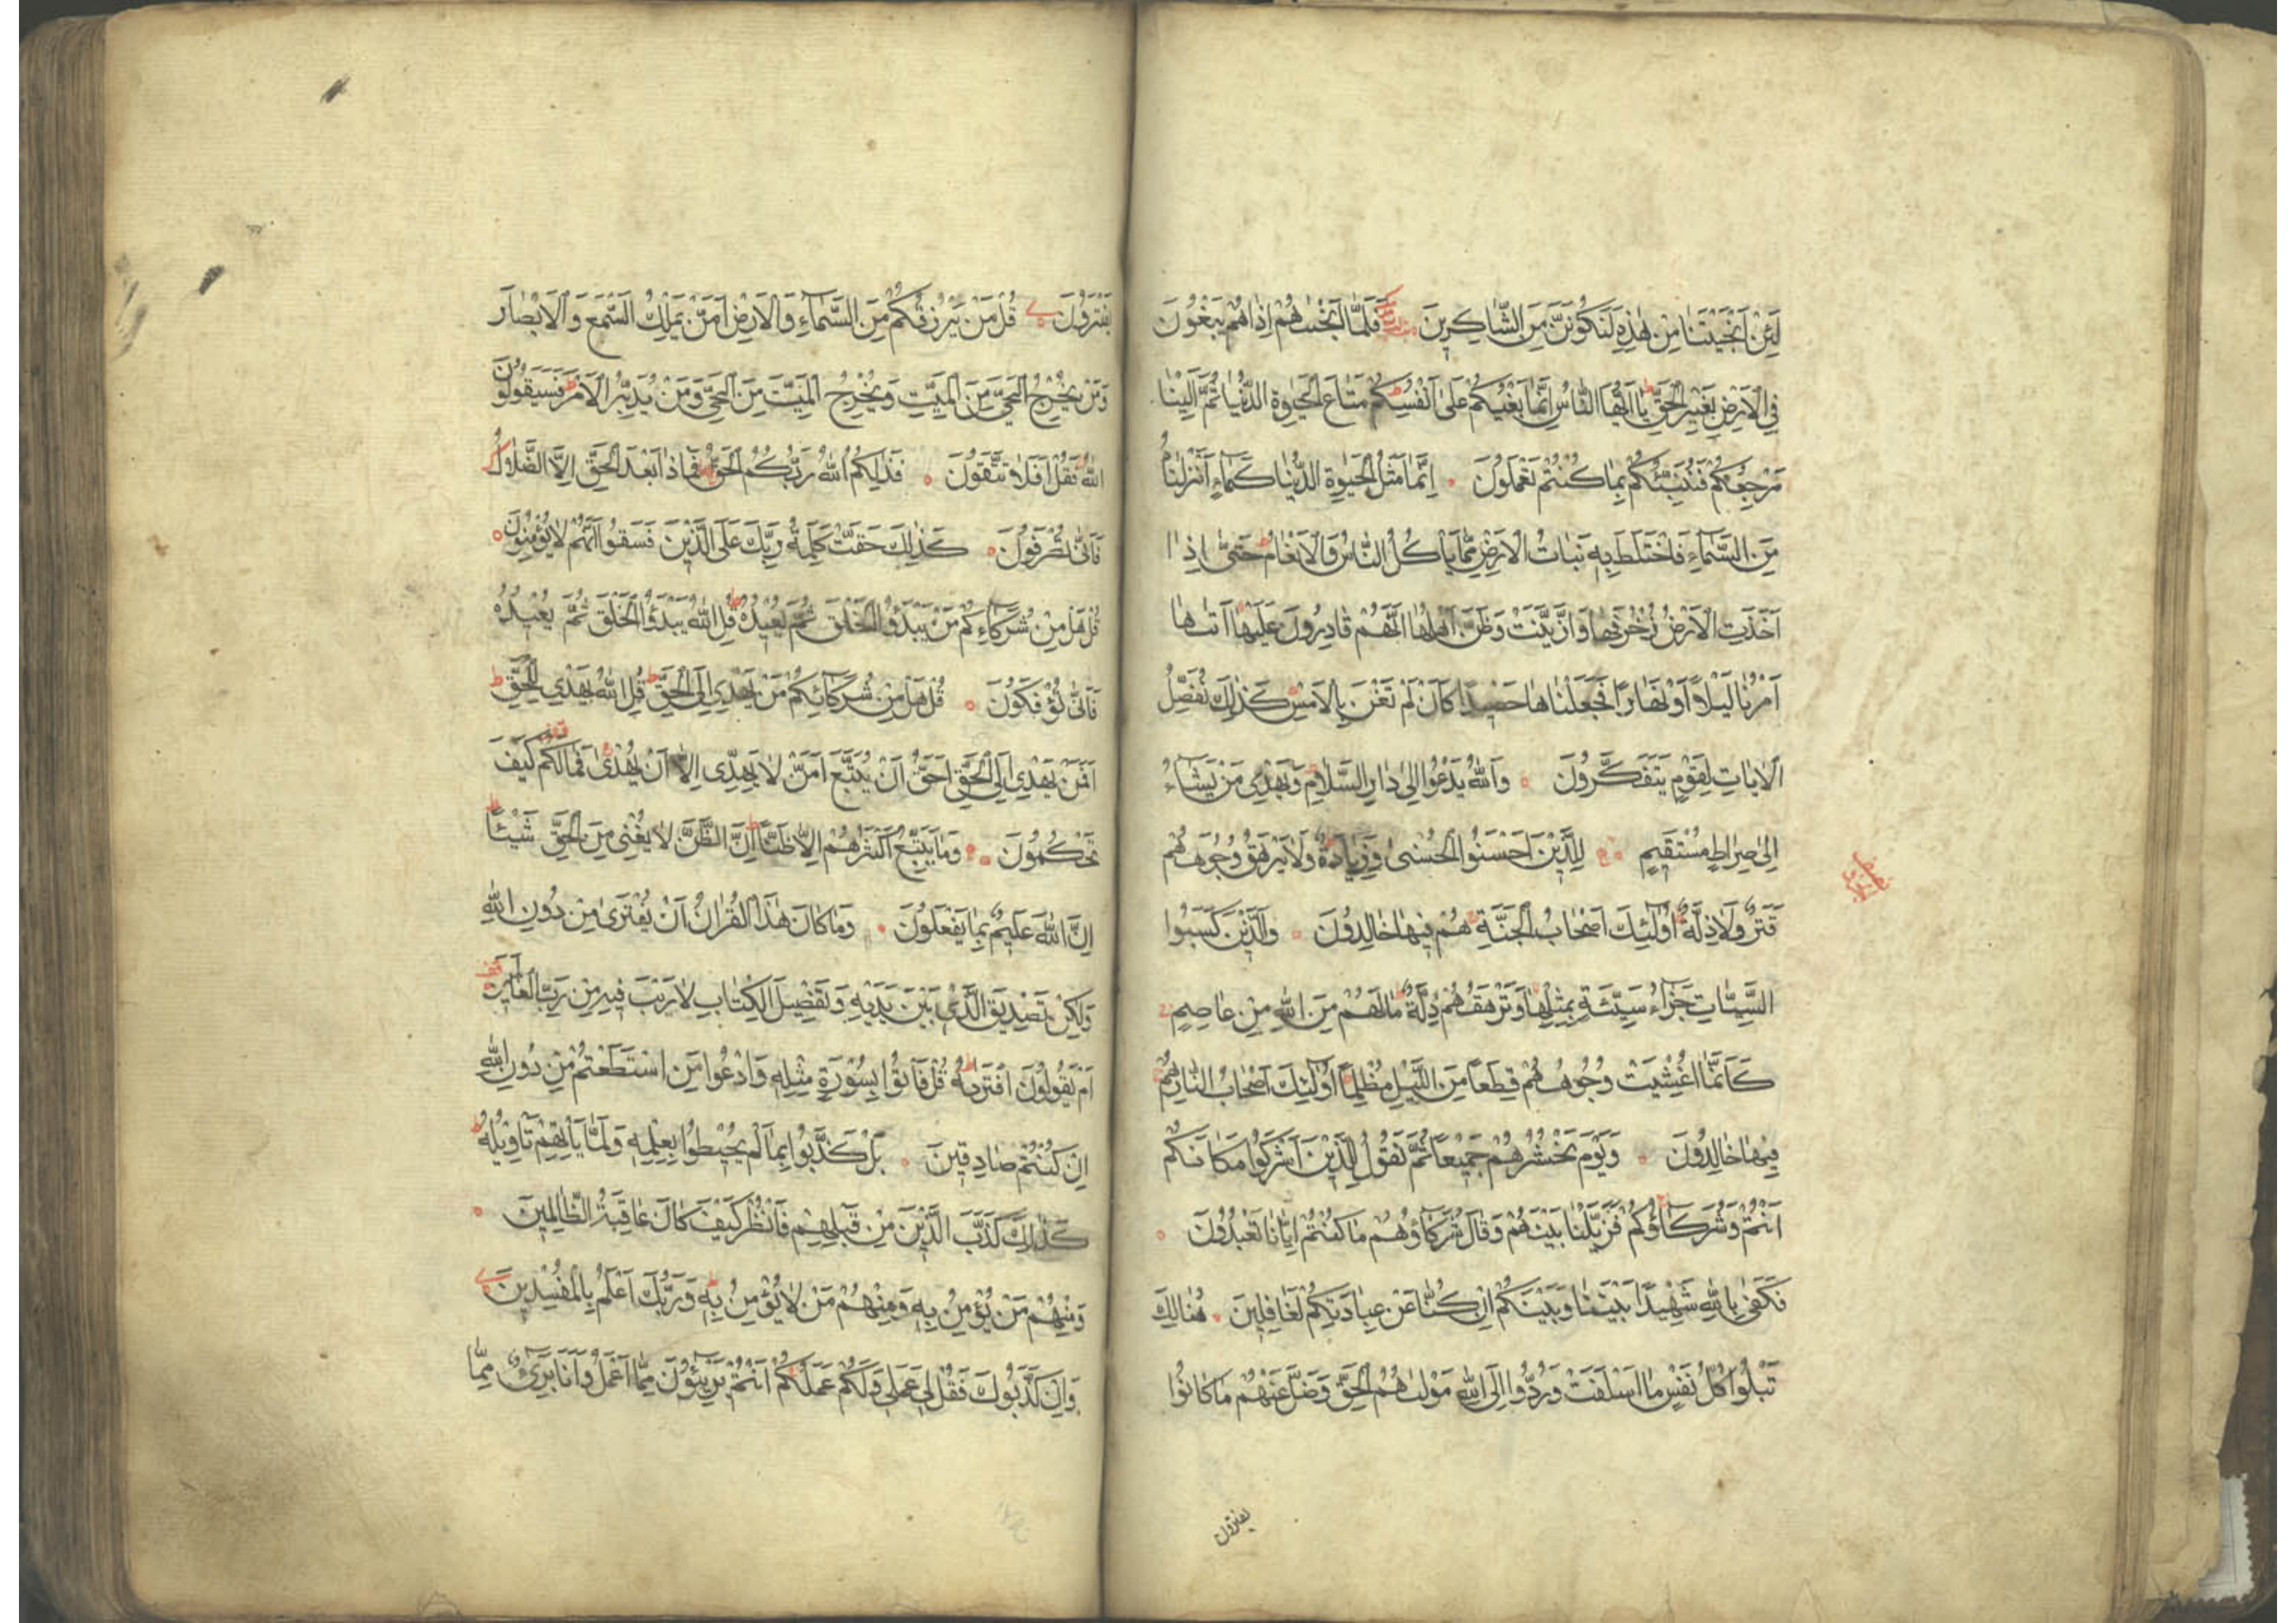 لَئِنْ اَنْجَيْتَنَا مِنْ هٰذِهِ لَنَكُونَنَّ مِنَ الشَّاكِرِينَ فَلَمَّا اَنْجٰيهُمْ اِذَا هُمْ يَبْغُونَ
فِي الْاَرْضِ بِغَيْرِ الْحَقِّ يَا اَيُّهَا النَّاسُ اِنَّمَا بَغْيُكُمْ عَلٰى اَنْفُسِكُمْ مَتَاعَ الْحَيٰوةِ الدُّنْيَا ثُمَّ اِلَيْنَا
مَرْجِعُكُمْ فَنُنَبِّئُكُمْ بِمَا كُنْتُمْ تَعْمَلُونَ اِنَّمَا مَثَلُ الْحَيٰوةِ الدُّنْيَا كَمَاءٍ اَنْزَلْنَاهُ
مِنَ السَّمَاءِ فَاخْتَلَطَ بِهِ نَبَاتُ الْاَرْضِ مِمَّا يَاْكُلُ النَّاسُ وَالْاَنْعَامُ حَتّٰى اِذَا
اَخَذَتِ الْاَرْضُ زُخْرُفَهَا وَازَّيَّنَتْ وَظَنَّ اَهْلُهَا اَنَّهُمْ قَادِرُونَ عَلَيْهَا اَتٰيهَا
اَمْرُنَا لَيْلًا اَوْ نَهَارًا فَجَعَلْنَاهَا حَصِيدًا كَاَنْ لَمْ تَغْنَ بِالْاَمْسِ كَذٰلِكَ نُفَصِّلُ
الْاٰيَاتِ لِقَوْمٍ يَتَفَكَّرُونَ وَاللّٰهُ يَدْعُوا اِلٰى دَارِ السَّلَامِ وَيَهْدِي مَنْ يَشَاءُ
اِلٰى صِرَاطٍ مُسْتَقِيمٍ لِلَّذِينَ اَحْسَنُوا الْحُسْنٰى وَزِيَادَةٌ وَلَا يَرْهَقُ وُجُوهَهُمْ
قَتَرٌ وَلَا ذِلَّةٌ اُولٰئِكَ اَصْحَابُ الْجَنَّةِ هُمْ فِيهَا خَالِدُونَ وَالَّذِينَ كَسَبُوا
السَّيِّئَاتِ جَزَاءُ سَيِّئَةٍ بِمِثْلِهَا وَتَرْهَقُهُمْ ذِلَّةٌ مَا لَهُمْ مِنَ اللّٰهِ مِنْ عَاصِمٍ
كَاَنَّمَا اُغْشِيَتْ وُجُوهُهُمْ قِطَعًا مِنَ اللَّيْلِ مُظْلِمًا اُولٰئِكَ اَصْحَابُ النَّارِ هُمْ
فِيهَا خَالِدُونَ وَيَوْمَ نَحْشُرُهُمْ جَمِيعًا ثُمَّ نَقُولُ لِلَّذِينَ اَشْرَكُوا مَكَانَكُمْ
اَنْتُمْ وَشُرَكَاؤُكُمْ فَزَيَّلْنَا بَيْنَهُمْ وَقَالَ شُرَكَاؤُهُمْ مَا كُنْتُمْ اِيَّانَا تَعْبُدُونَ
فَكَفٰى بِاللّٰهِ شَهِيدًا بَيْنَنَا وَبَيْنَكُمْ اِنْ كُنَّا عَنْ عِبَادَتِكُمْ لَغَافِلِينَ هُنَالِكَ
تَبْلُوا كُلُّ نَفْسٍ مَا اَسْلَفَتْ وَرُدُّوا اِلَى اللّٰهِ مَوْلٰيهُمُ الْحَقِّ وَضَلَّ عَنْهُمْ مَا كَانُوا
يفترون
يَفْتَرُونَ قُلْ مَنْ يَرْزُقُكُمْ مِنَ السَّمَاءِ وَالْاَرْضِ اَمَّنْ يَمْلِكُ السَّمْعَ وَالْاَبْصَارَ
وَمَنْ يُخْرِجُ الْحَيَّ مِنَ الْمَيِّتِ وَيُخْرِجُ الْمَيِّتَ مِنَ الْحَيِّ وَمَنْ يُدَبِّرُ الْاَمْرَ فَسَيَقُولُونَ
اللّٰهُ فَقُلْ اَفَلَا تَتَّقُونَ فَذٰلِكُمُ اللّٰهُ رَبُّكُمُ الْحَقُّ فَمَاذَا بَعْدَ الْحَقِّ اِلَّا الضَّلَالُ
فَاَنّٰى تُصْرَفُونَ كَذٰلِكَ حَقَّتْ كَلِمَةُ رَبِّكَ عَلَى الَّذِينَ فَسَقُوا اَنَّهُمْ لَا يُؤْمِنُونَ
قُلْ هَلْ مِنْ شُرَكَاءِكُمْ مَنْ يَبْدَؤُا الْخَلْقَ ثُمَّ يُعِيدُهُ قُلِ اللّٰهُ يَبْدَؤُا الْخَلْقَ ثُمَّ يُعِيدُهُ
فَاَنّٰى تُؤْفَكُونَ قُلْ هَلْ مِنْ شُرَكَائِكُمْ مَنْ يَهْدِي اِلَى الْحَقِّ قُلِ اللّٰهُ يَهْدِي لِلْحَقِّ
اَفَمَنْ يَهْدِي اِلَى الْحَقِّ اَحَقُّ اَنْ يُتَّبَعَ اَمَّنْ لَا يَهِدِّي اِلَّا اَنْ يُهْدٰى فَمَا لَكُمْ كَيْفَ
تَحْكُمُونَ وَمَا يَتَّبِعُ اَكْثَرُهُمْ اِلَّا ظَنًّا اِنَّ الظَّنَّ لَا يُغْنِي مِنَ الْحَقِّ شَيْئًا
اِنَّ اللّٰهَ عَلِيمٌ بِمَا يَفْعَلُونَ وَمَا كَانَ هٰذَا الْقُرْاٰنُ اَنْ يُفْتَرٰى مِنْ دُونِ اللّٰهِ
وَلٰكِنْ تَصْدِيقَ الَّذِي بَيْنَ يَدَيْهِ وَتَفْصِيلَ الْكِتَابِ لَا رَيْبَ فِيهِ مِنْ رَبِّ الْعَالَمِينَ
اَمْ يَقُولُونَ افْتَرٰيهُ قُلْ فَاْتُوا بِسُورَةٍ مِثْلِهِ وَادْعُوا مَنِ اسْتَطَعْتُمْ مِنْ دُونِ اللّٰهِ
اِنْ كُنْتُمْ صَادِقِينَ بَلْ كَذَّبُوا بِمَا لَمْ يُحِيطُوا بِعِلْمِهِ وَلَمَّا يَاْتِهِمْ تَاْوِيلُهُ
كَذٰلِكَ كَذَّبَ الَّذِينَ مِنْ قَبْلِهِمْ فَانْظُرْ كَيْفَ كَانَ عَاقِبَةُ الظَّالِمِينَ
وَمِنْهُمْ مَنْ يُؤْمِنُ بِهِ وَمِنْهُمْ مَنْ لَا يُؤْمِنُ بِهِ وَرَبُّكَ اَعْلَمُ بِالْمُفْسِدِينَ
وَاِنْ كَذَّبُوكَ فَقُلْ لِي عَمَلِي وَلَكُمْ عَمَلُكُمْ اَنْتُمْ بَرِيئُونَ مِمَّا اَعْمَلُ وَاَنَا بَرِيءٌ مِمَّا